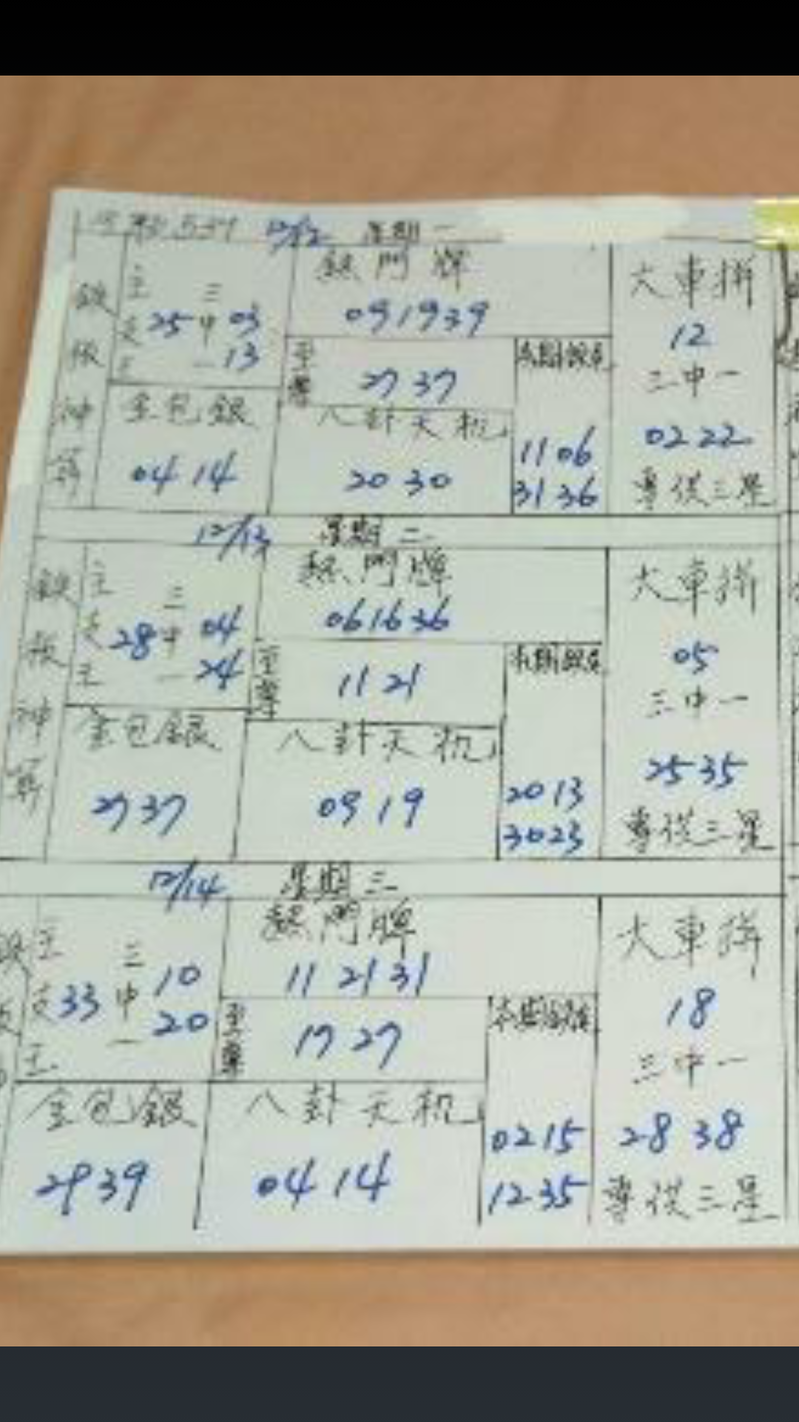 539 12/12 星期一
鐵板神算
主支 25 三中一 03 13
熱門牌
09 19 39
至尊 27 37
本期
11 06
31 36
大車拼
12
三中一
02 22
專從三星
金包銀
04 14
八卦天机
20 30
12/13 星期二
鐵板神算
主支 28 三中一 04 24
熱門牌
06 16 36
至尊 11 21
本期
20 13
30 23
大車拼
05
三中一
25 35
專從三星
金包銀
27 37
八卦天机
09 19
12/14 星期三
主支 33 三中一 10 20
熱門牌
11 21 31
至尊 17 27
本期
02 15
12 35
大車拼
18
三中一
28 38
專從三星
金包銀
29 39
八卦天机
04 14